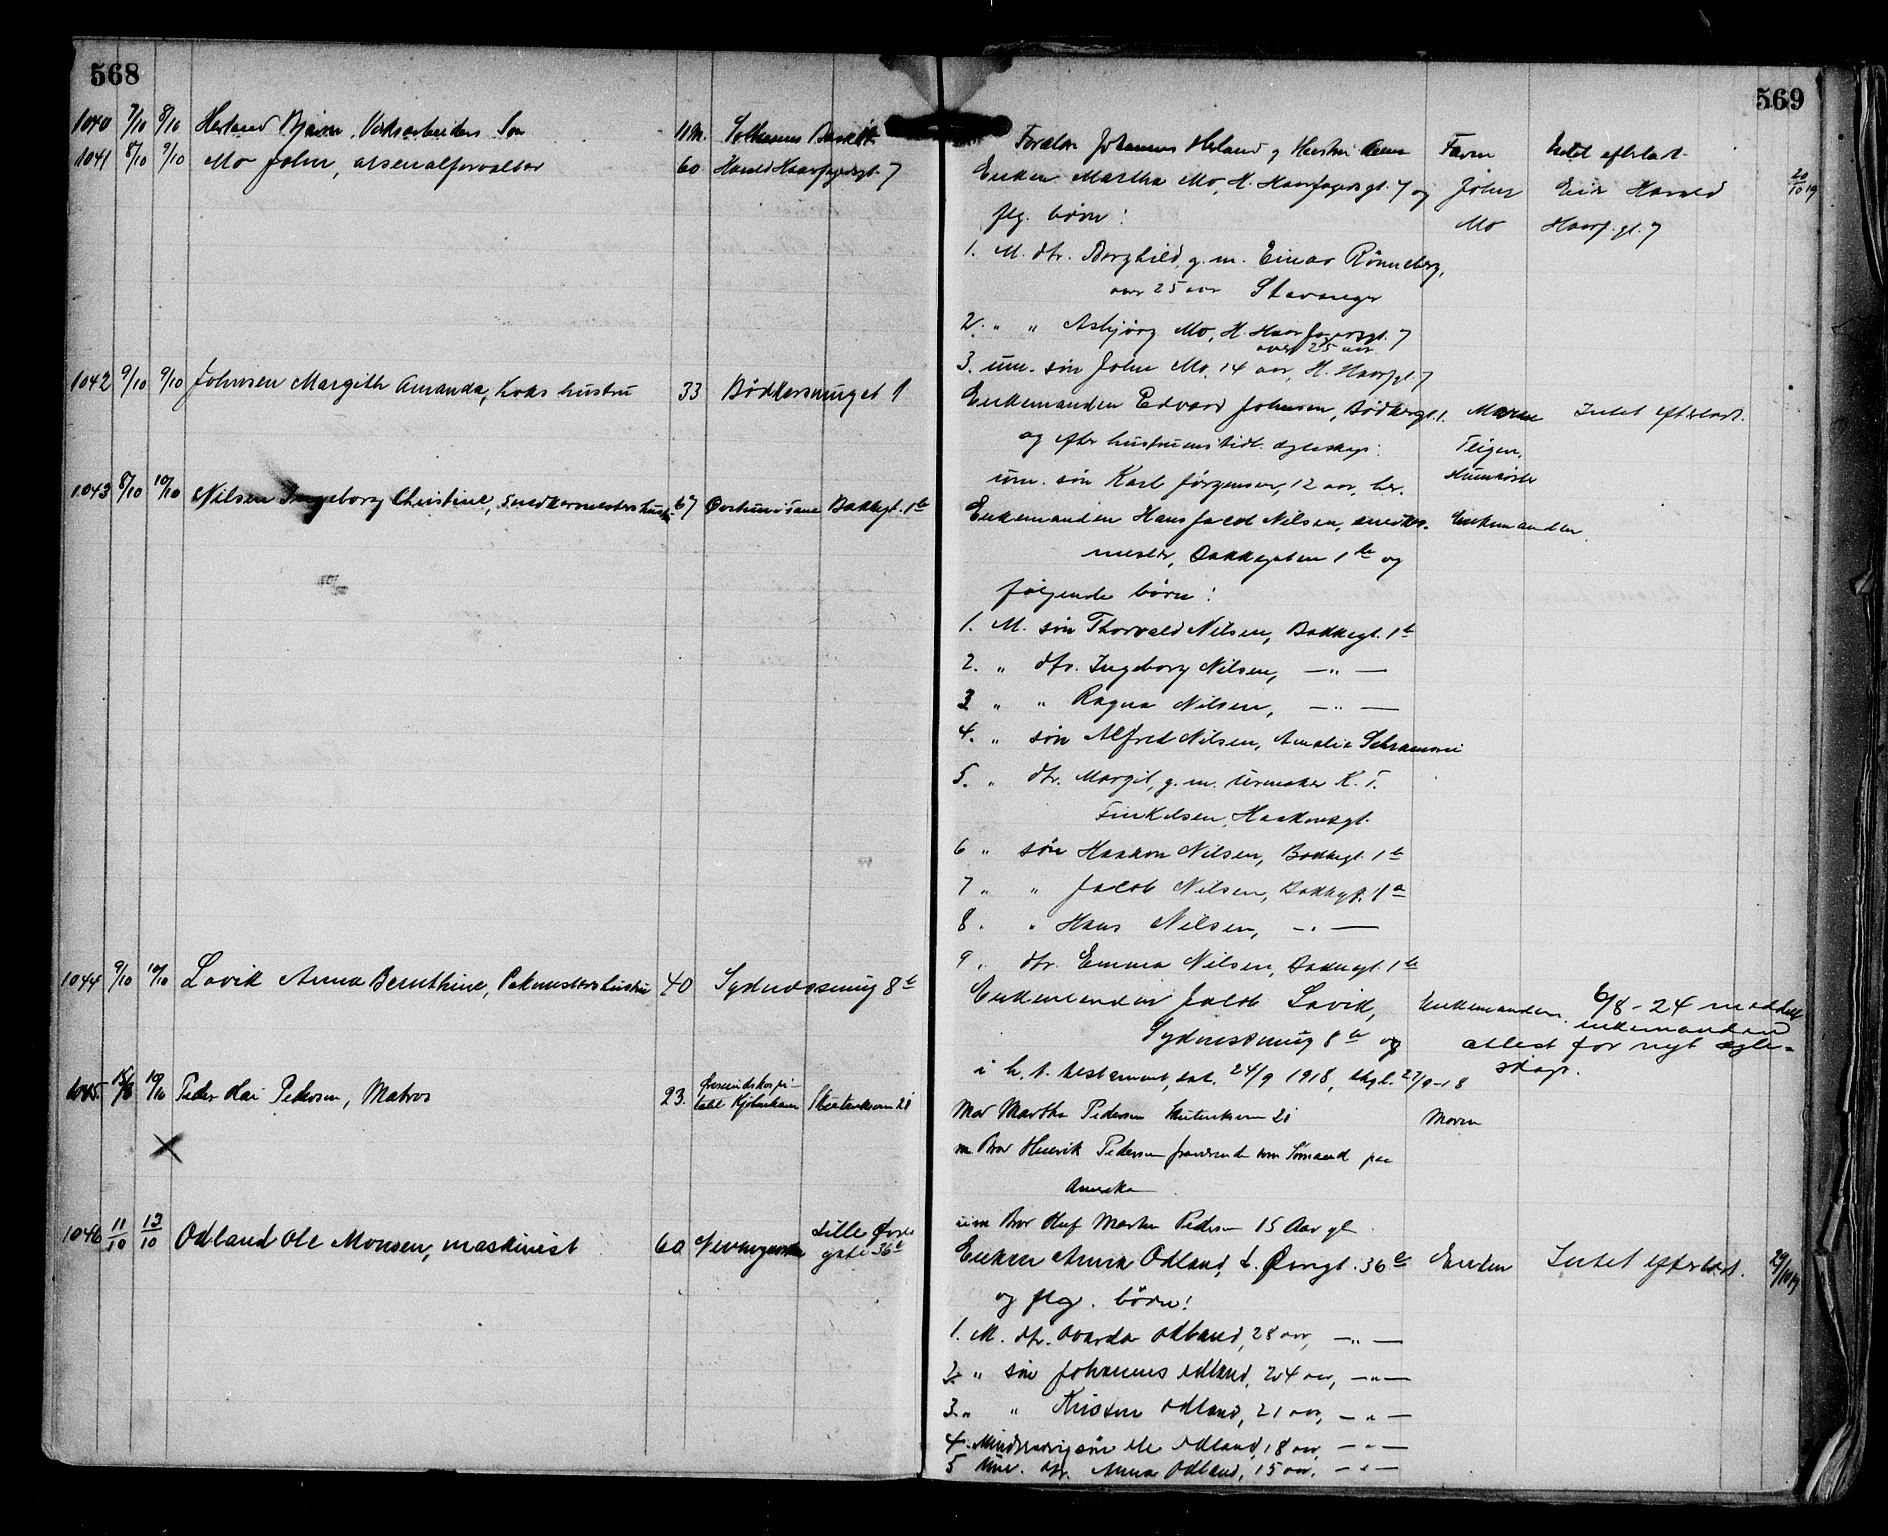 568
569
1040 7/10 8/10 Herland Bjarne, Verksarbeiders Søn 11 M.
Forældre Johannes Herland og Hustru Faren Intet efterladt.
1041 8/10 9/10 Mo John, arsenalforvalter 60 Harald Haarfagersgt. 7
Enken Martha Mo, H. Haarfagersgt. 7 og John Eier Harald 20/10 19
flg. børn: Mo Haarf. gt. 7
1. M. dtr. Borghild, g. m. Einar Rönneberg,
over 25 aar Stavanger
2. " " Asbjørg Mo, H. Haarfagersgt. 7
over 25 aar
3. um. søn John Mo, 14 aar, H. Haarfgt. 7
1042 9/10 9/10 Johnsen Margith Amanda, Koks hustru 33 Bødkersmuget 1
Enkemanden Edvard Johnsen, Bødkersgt. 1. Intet efterladt.
og efter hustruens tidl. ægteskap: Teigen,
um. søn Karl Jørgensen, 12 aar, her.
1043 8/10 10/10 Nilsen Ingeborg Christine, Snedkermesters hustru 67 Bakkegt. 1b
Enkemanden Hans Jacob Nilsen, snedker- Enkemanden.
mester, Bakkegaten 1b og
følgende børn:
1. M. søn Thorvald Nilsen, Bakkegt. 1b
2. " dtr. Ingeborg Nilsen, — " —
3 " " Ragna Nilsen, — " —
4. " søn Alfred Nilsen, Amalie Schramsvei
5. " dtr. Margit, g. m. urmaker K. T.
Finkelsen, Haakonsgt.
6 " søn Haakon Nilsen, Bakkegt. 1b
7 " " Jacob Nilsen, Bakkegt. 1a
8. " Hans Nilsen, — " —
9 " dtr. Emma Nilsen, Bakkegt. 1b
1044 9/10 10/10 Lavik Anna Bernthine, hustru 40 Sydnessmug 8b
Enkemanden Jacob Lavik, Enkemanden. 6/8 - 24 meddelt
enkemanden
Sydnessmug 8b og attest for nyt egte-
skap.
i h. t. testament, dat. 24/9 1918, thgl. 27/9-18
1045. 10/10 Peder Kai Pedersen, Matros 23. Øresundshospi-
talet Kjøbenhavn 21
Mor Martha Pedersen 21 Moren
m Bror Henrik Pedersen fraværende som Sømand paa
Amerika
um Bror Oluf Martin Pedersen 15 Aar gl.
1046 11/10 13/10 Odland Ole Monsen, maskinist 60 Lille Øvre
gate 36b
Enken Anna Odland, L. Øvregt. 36b Enken Intet efterladt. 29/10 19
og flg. børn:
1. M. dtr. Odland, 28 aar, — " —
2. " søn Johannes Odland, 24 aar, — " —
3. " " Odland, 21 aar, — " —
4. Mindreaarig søn Ole Odland, 18 aar — " —
5 Um. dtr. Anna Odland, 15 aar, — " —